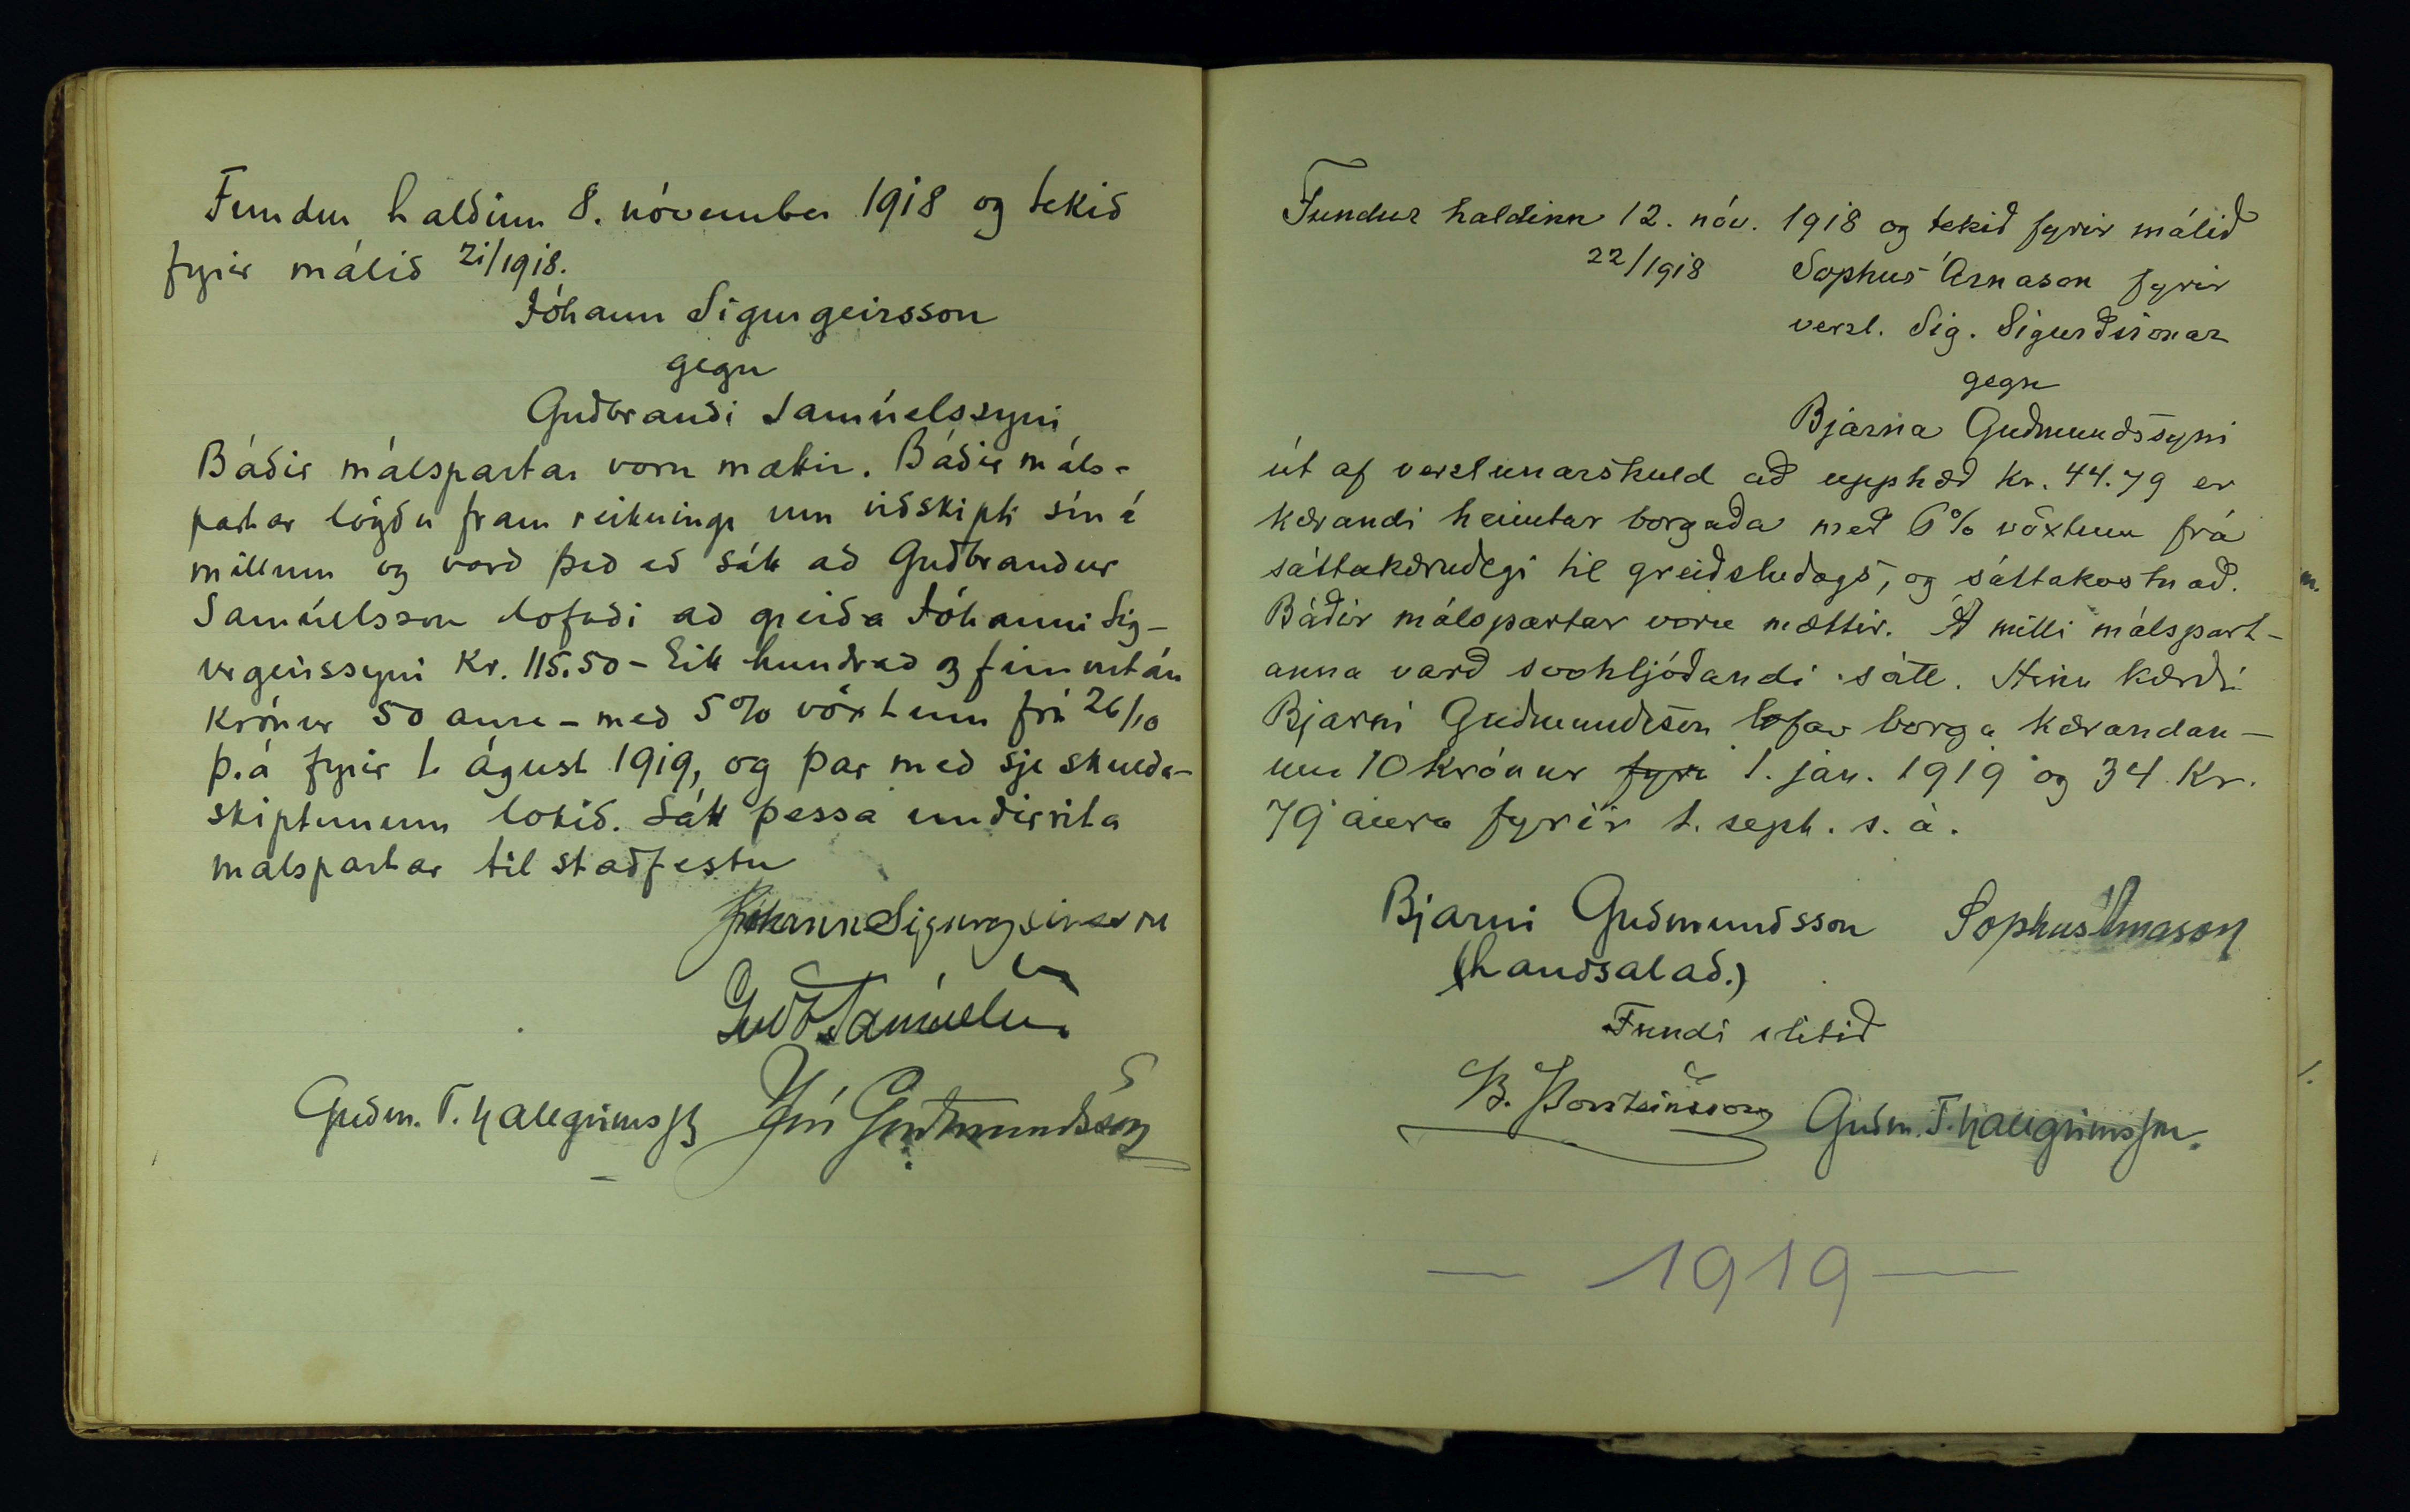 Fundur haldinn 8. nóvember 1918 og tekið
fyrir málið 21/1918.
Jóhann Sigurgeirsson
gegn
Guðbrandi Samúelssyni
Báðir málspartar voru mættir. Báðir máls-
partar lögðu fram reikninga um viðskipti sín á
millum og varð það að sátt að Guðbrandur
Samúelsson lofaði að greiða Jóhanni Sig-
urgeirssyni Kr. 115.50 - Eitt hundrað og fimmtán
Krónur 50 aura - með 5% vöxtum frá 26/10
þ.á fyrir 1. ágúst 1919, og þar með sje skulda-
skiptunum lokið. Sátt þessa undirrita
malspartar til staðfestu
Jóhann Sigurgeirsson
Guðb. Samúelss.
Guðm. T. Hallgrímss Jón Guðmundsson
Fundur haldinn 12. nóv. 1918 og tekið fyrir málið
22/1918 Sophus Árnason fyrir
verzl. Sig. Sigurðssonar
gegn
Bjarna Guðmundssyni
út af verzlunarskuld að upphæð kr. 44.79 er
kærandi heimtar borgaða með 6% vöxtum frá
sáttakærudegi til greiðsludags, og sáttakostnað.
Báðir málspartar voru mættir. Á milli málspart-
anna varð svohljóðandi sátt. Hinn kærði
Bjarni Guðmundsson lofar borga kærandan-
um 10 krónur fyri 1. jan. 1919 og 34 Kr.
79 aura fyrir 1. sept. s. á.
Bjarni Guðmundsson Sophus Árnason
(handsalað.)
Fundi slitið
B. Þorsteinsson Guðm. T. Hallgrímsson.
— 1919 —